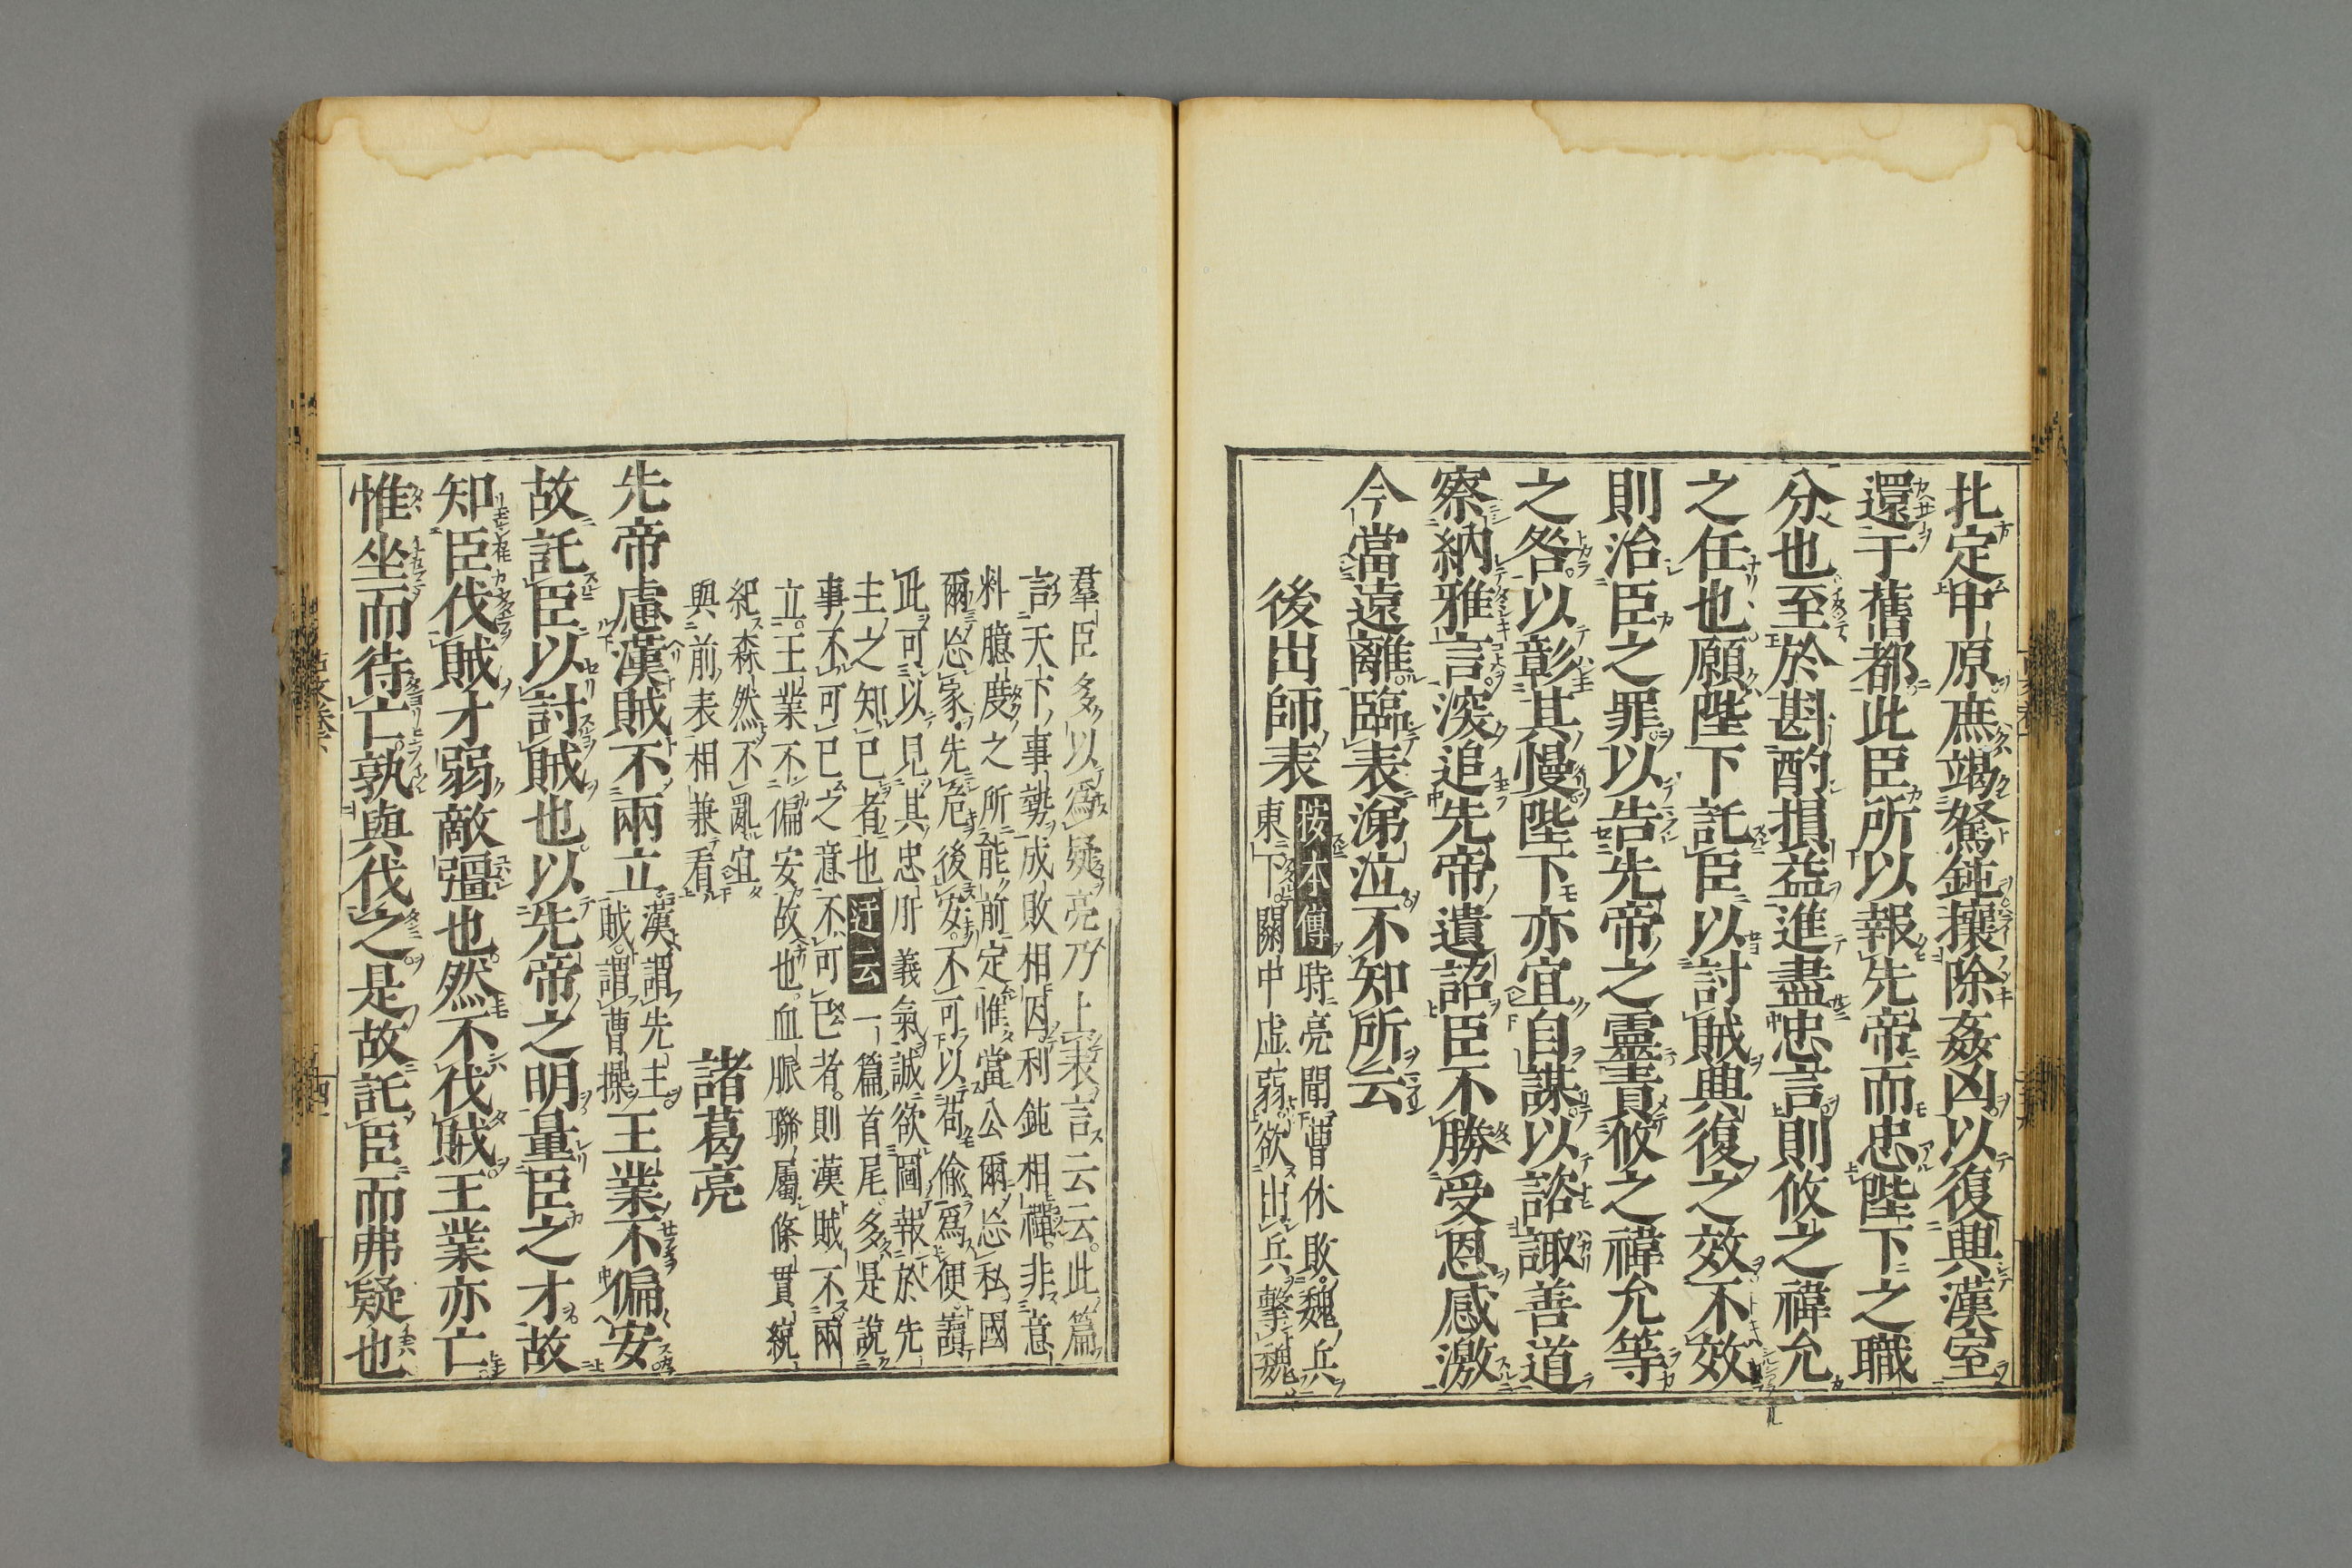 北定中原庶竭駑鈍攘除姦凶以復興漢室
還于舊都此臣所以報先帝而忠陛下之職
分也至於斟酌損益進盡忠言則攸之禕允
之任也願陛下託臣以討賊興復之效不效
則治臣之罪以告先帝之靈責攸之禕允等
之咎以彰其慢陛下亦宜自謀以諮諏善道
察納雅言深追先帝遺詔臣不勝受恩感激
今當遠離臨表涕泣不知所云
後出師表
按本傳時亮聞曹休敗魏兵
東下關中虛弱欲出兵擊魏
羣臣多以爲疑亮乃上表言云云此篇
言天下事勢成敗相因利鈍相襌非意
料臆度之所能前定惟當公爾忘私國
爾忘家先危後安不可以苟偷爲便讀
此可以見其忠肝義氣誠欲圖報於先
主之知已者也迂云一篇首尾多是說
事不可已之意不可已者則漢賊不兩
立王業不偏安故也血脈聯屬條貫統
紀森然不亂宜
與前表相兼看
諸葛亮
先帝慮漢賊不兩立漢謂先主
賊謂曹操王業不偏安
故託臣以討賊也以先帝之明量臣之才故
知臣伐賊才弱敵彊也然不伐賊王業亦亡
惟坐而待亡孰與伐之是故託臣而弗疑也